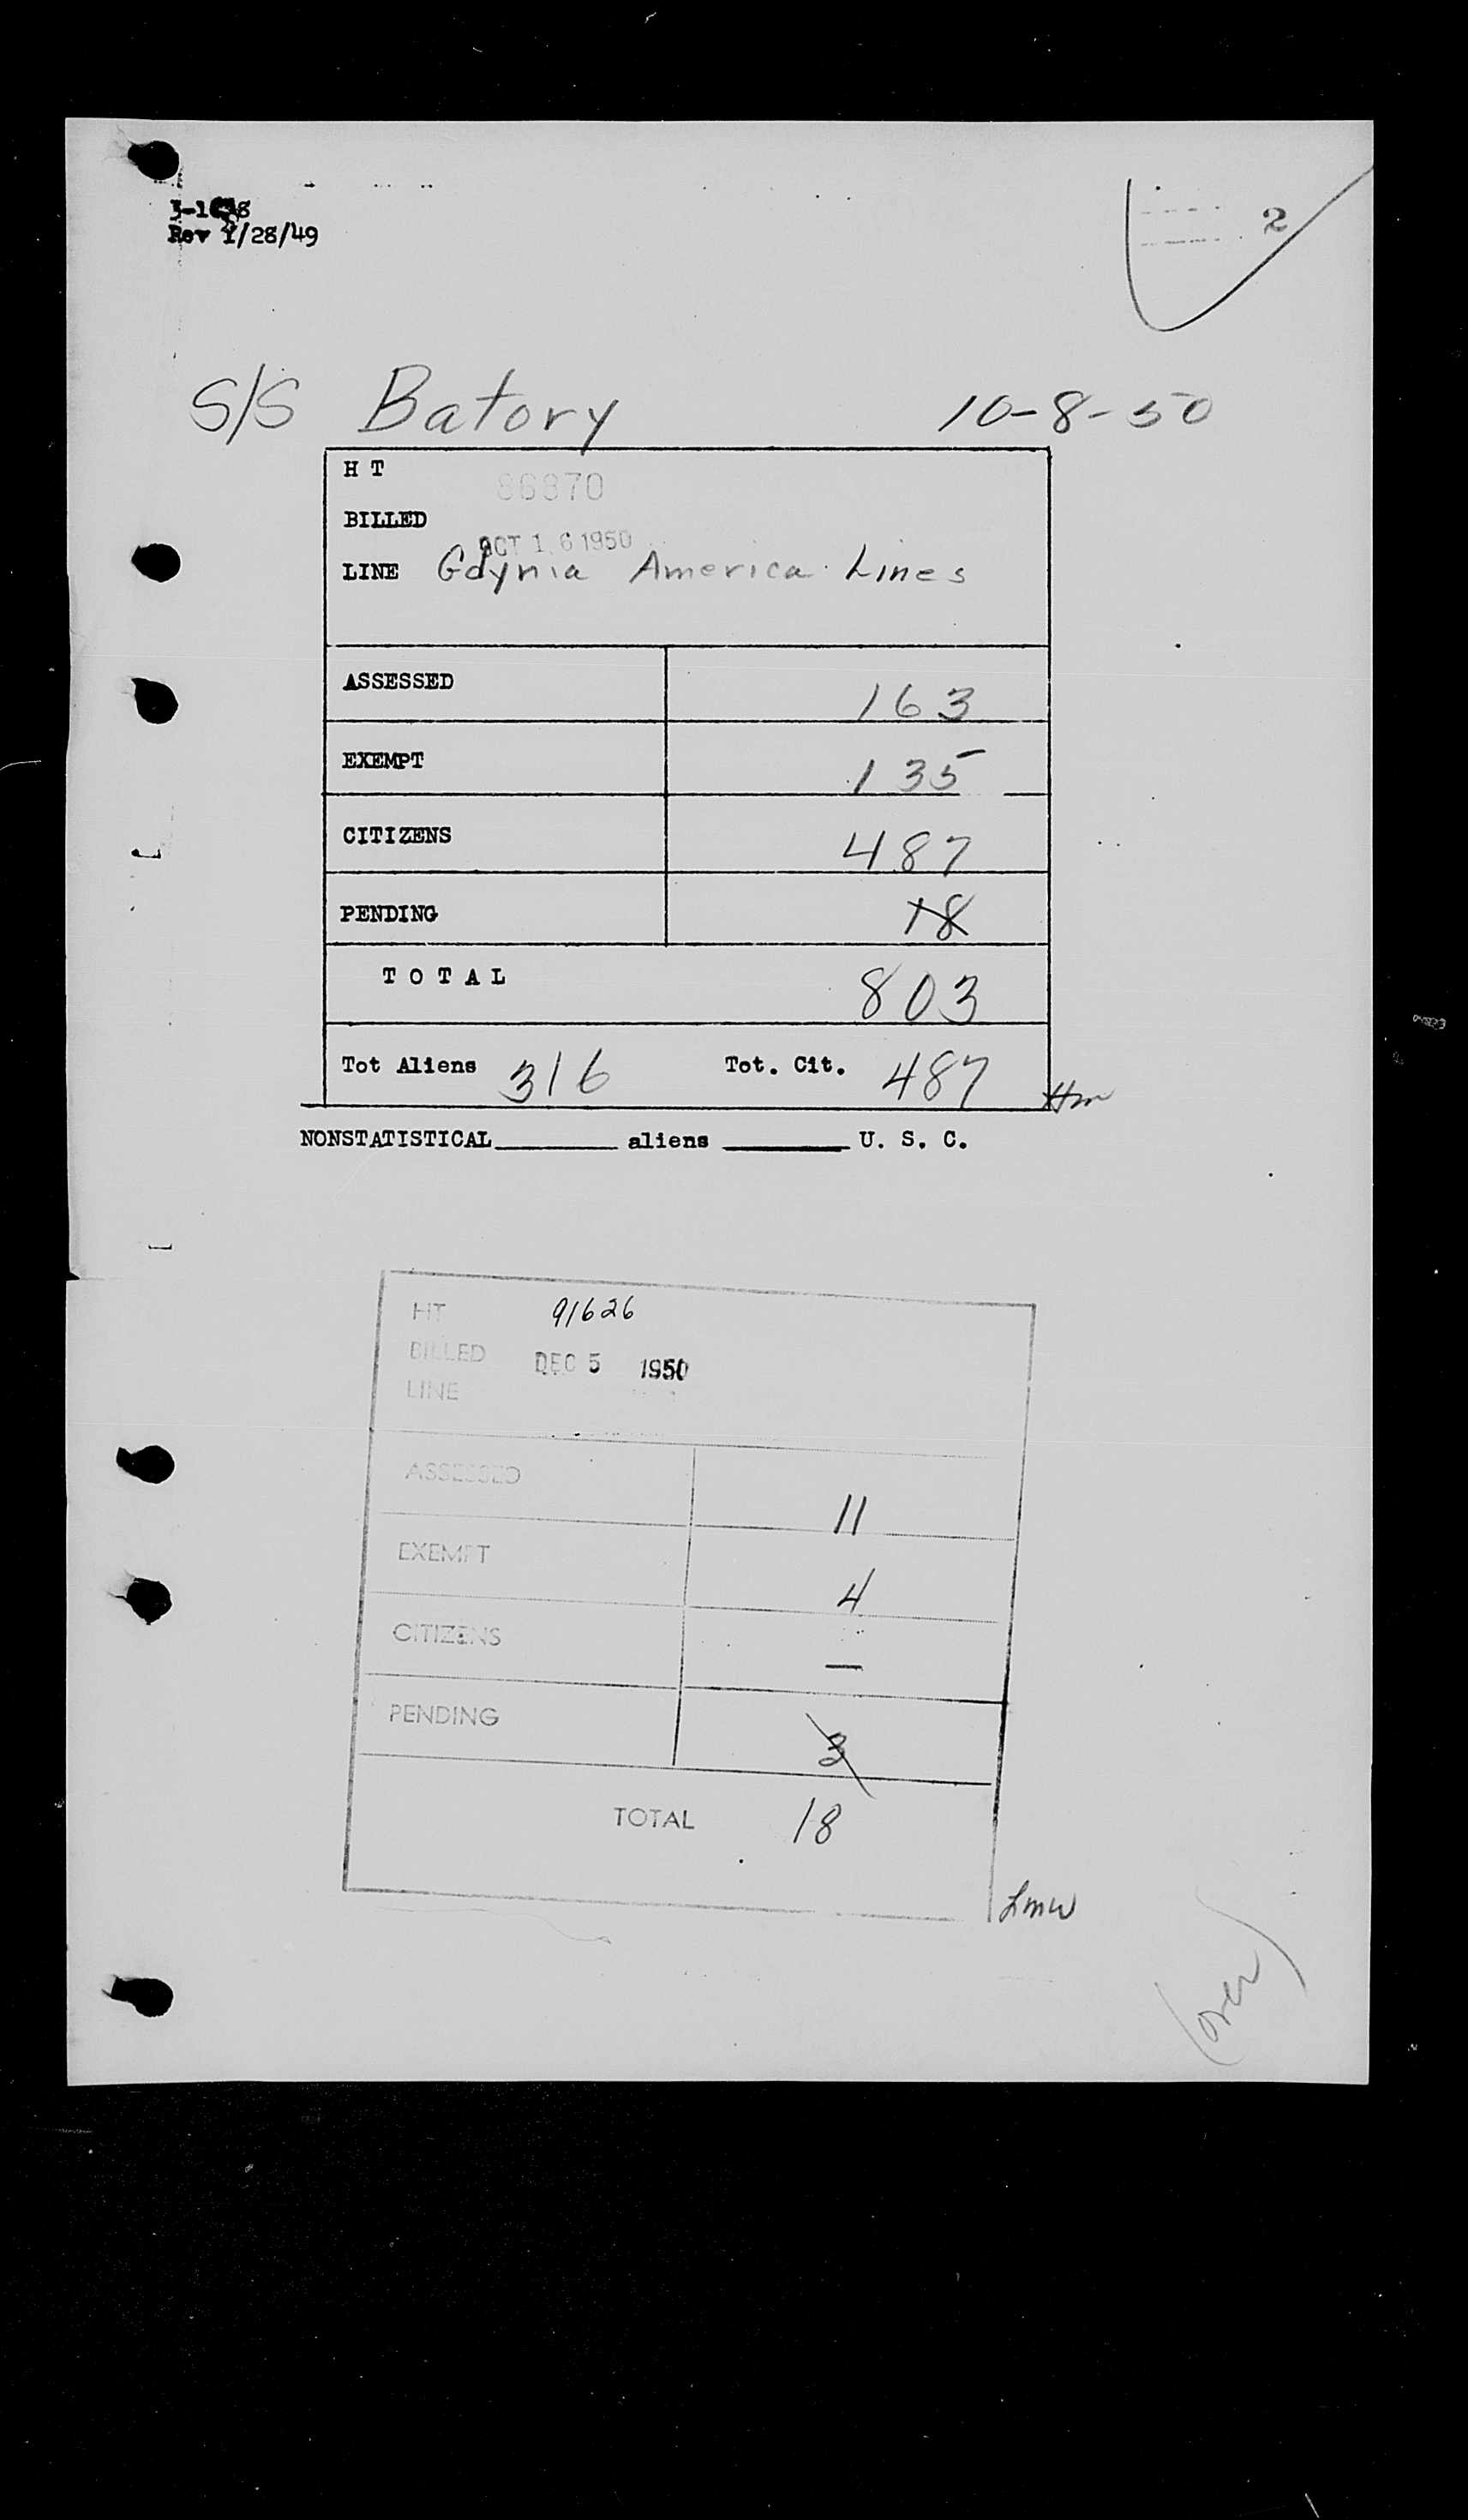 Rev 1/28/49
2
S/S Batory 10-8-50
H T
86870
BILLED
OCT 16 1950
LINE Gdynia America Lines
ASSESSED 163
EXEMPT 135
CITIZENS 487
PENDING 18
TOTAL 803
Tot Aliens 316 Tot. Cit. 487
NONSTATISTICAL aliens U. S. C.
HT 91626
BILLED DEC 5 1950
LINE
ASSESSED 11
EXEMPT 4
CITIZENS —
PENDING 3
TOTAL 18
Lmw
(over)